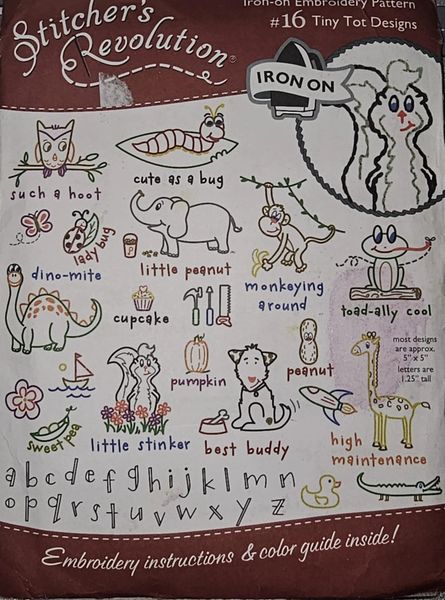 Stitcher's
Revolution®
Iron-on Embroidery Pattern
#16 Tiny Tot Designs
IRON ON
such a hoot
cute as a bug
ladybug
dino-mite
little peanut
monkeying
around
toad-ally cool
cupcake
most designs
are approx.
5" x 5"
letters are
1.25" tall
pumpkin
peanut
sweet pea
little stinker
best buddy
high
maintenance
a b c d e f g h i j k l m n
o p q r s t u v w x y z
Embroidery instructions & color guide inside!